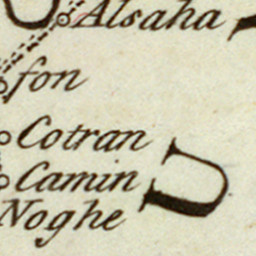 Alsaha
fon
Cotran
Camin
D
Noghe